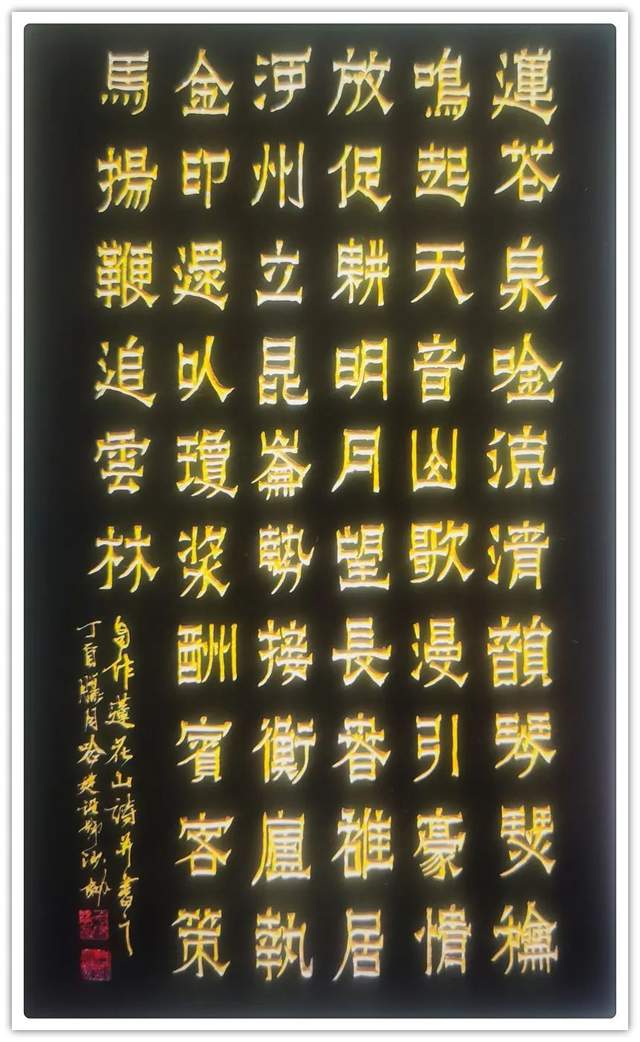 蓮花泉唫流清韻琴瑟龢
鳴起天音山歌漫引豪情
放促耕明月望長春雄居
河州立昆崙勢接衡廬執
金印還以瓊漿酬賓客策
馬揚鞭追雲林
自作蓮花山詩并書之
丁酉臘月